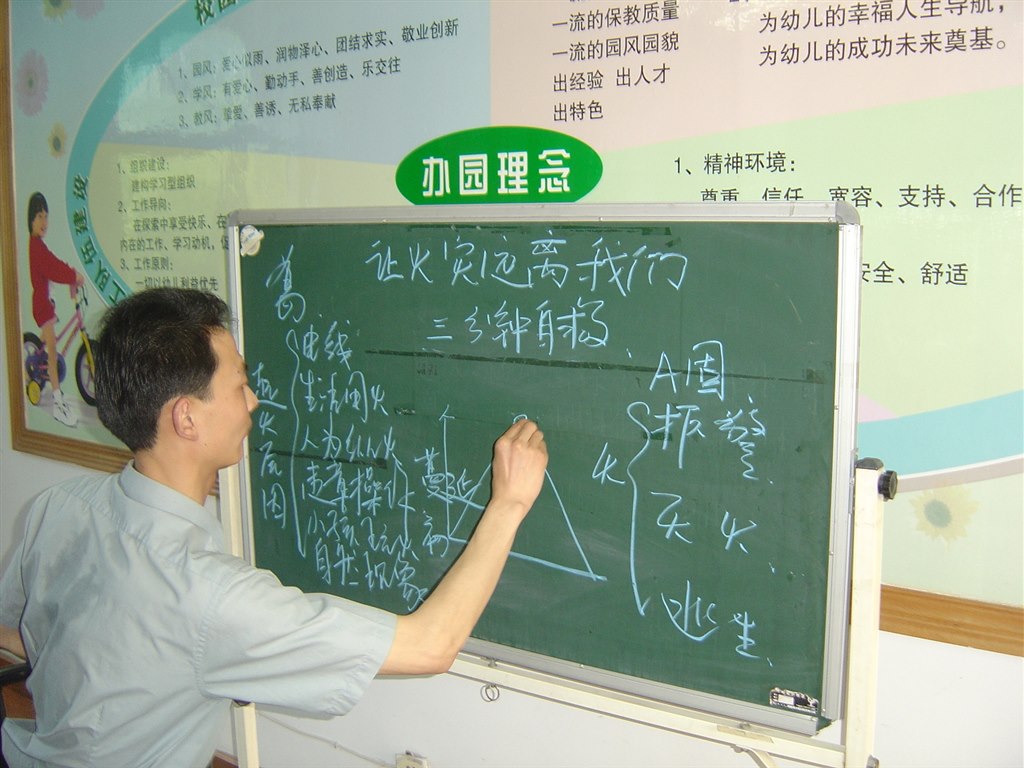 校园
1、园风：爱心似雨、润物泽心、团结求实、敬业创新
2、学风：有爱心、勤动手、善创造、乐交往
3、教风：挚爱、善诱、无私奉献
一流的保教质量
一流的园风园貌
出经验 出人才
出特色
为幼儿的幸福人生导航，
为幼儿的成功未来奠基。
队伍建设
1、组织建设：
建构学习型组织
2、工作导向：
在探索中享受快乐、在
内在的工作、学习动机，促
3、工作原则：
一切以幼儿利益优先
办园理念
1、精神环境：
尊重 信任 宽容、支持、合作
安全、舒适
让火灾远离我们
三分钟自救
起火原因
电线
生活用火
人为纵火
违章操作
小孩玩火
自然现象
蔓延
A 固
火
报警
灭火
逃生